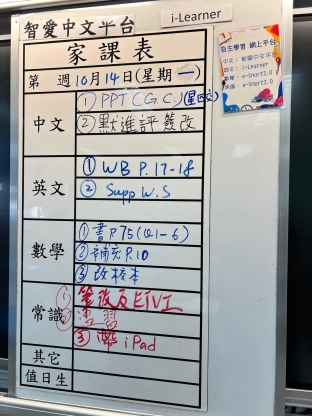 智愛中文平台
i-Learner
家課表
第 週 10月14日(星期一)
中文
① PPT(G.C.)(星四交)
② 默進評簽改
英文
① WB P.17-18
② Supp W.S
數學
① 書P.75(Q1-6)
② 補充P.10
③ 改校本
常識
① 簽改及ETVI
② 溫習
③ 帶 iPad
其它
值日生
自主學習 網上平台
中文: 智愛中文平台
英文: i-Learner
數學: e-Smart2.0
常識: e-Smart2.0